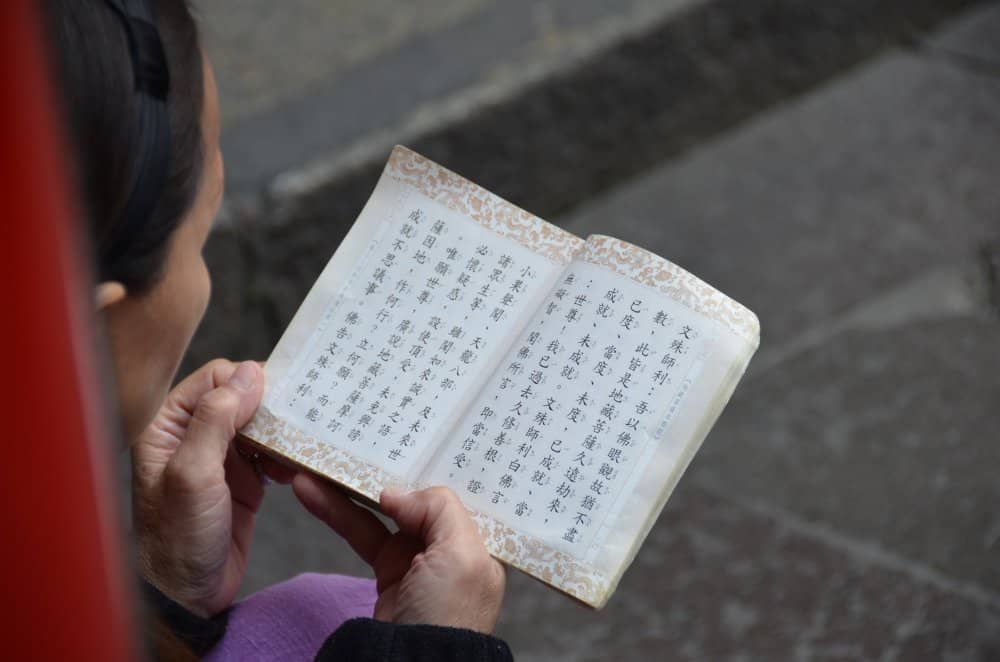 文殊師利：吾以佛眼觀故猶不盡
數，此皆是地藏菩薩久遠劫來，
已度、當度、未度，已成就、當
成就、未成就。文殊師利白佛言
：世尊！我已過去久修善根，證
無礙智，聞佛所言，即當信受
小果聲聞、天龍八部，及未來世
諸眾生等、雖聞如來誠實之語，
必懷疑惑，設使頂受，未免興謗
。唯願世尊，廣說地藏菩薩摩訶
薩因地，作何行？立何願？而能
成就不思議事。佛告文殊師利